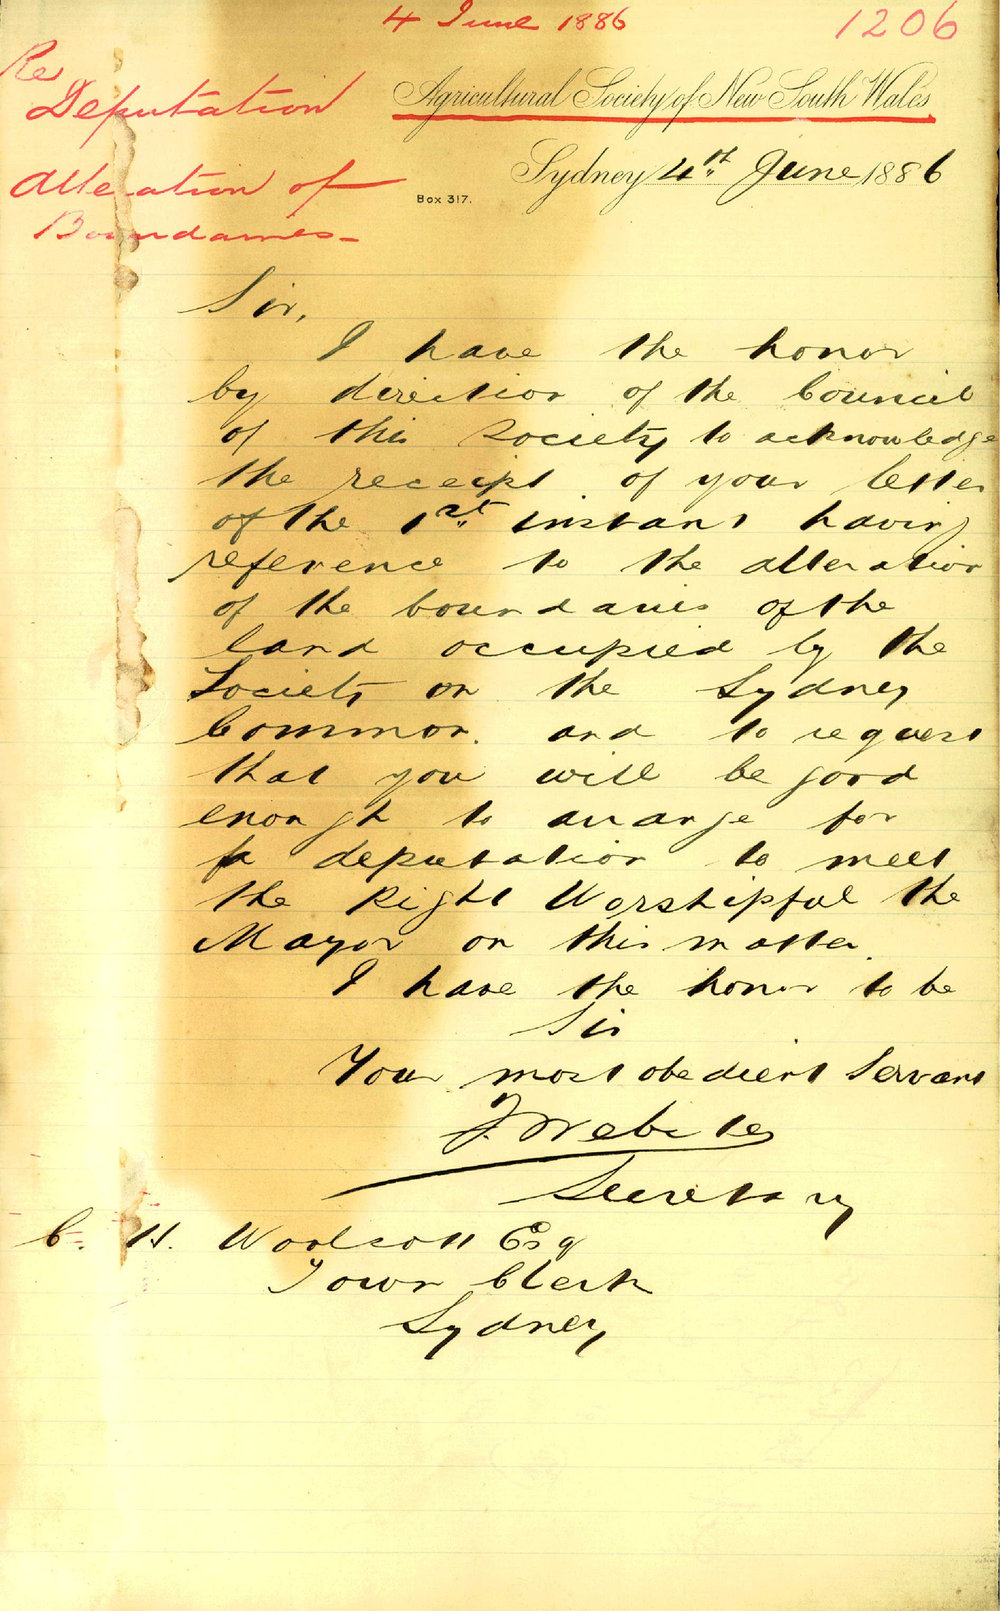 4 June 1886
1206
Re
Deputation
Alteration of
Boundaries -
Agricultural Society of New South Wales
Box 317.
Sydney 4th June 1886
Sir,
I have the honor
by direction of the Council
of this Society to acknowledge
the receipt of your letter
of the 1st instant having
reference to the alteration
of the boundaries of the
land occupied by the
Society on the Sydney
Common. and to request
that you will be good
enough to arrange for
a deputation to meet
the Right Worshipful the
Mayor on this matter.
I have the honor to be
Sir
Your most obedient Servant
F Webster
Secretary
C. H. Woolcott Esq
Town Clerk
Sydney